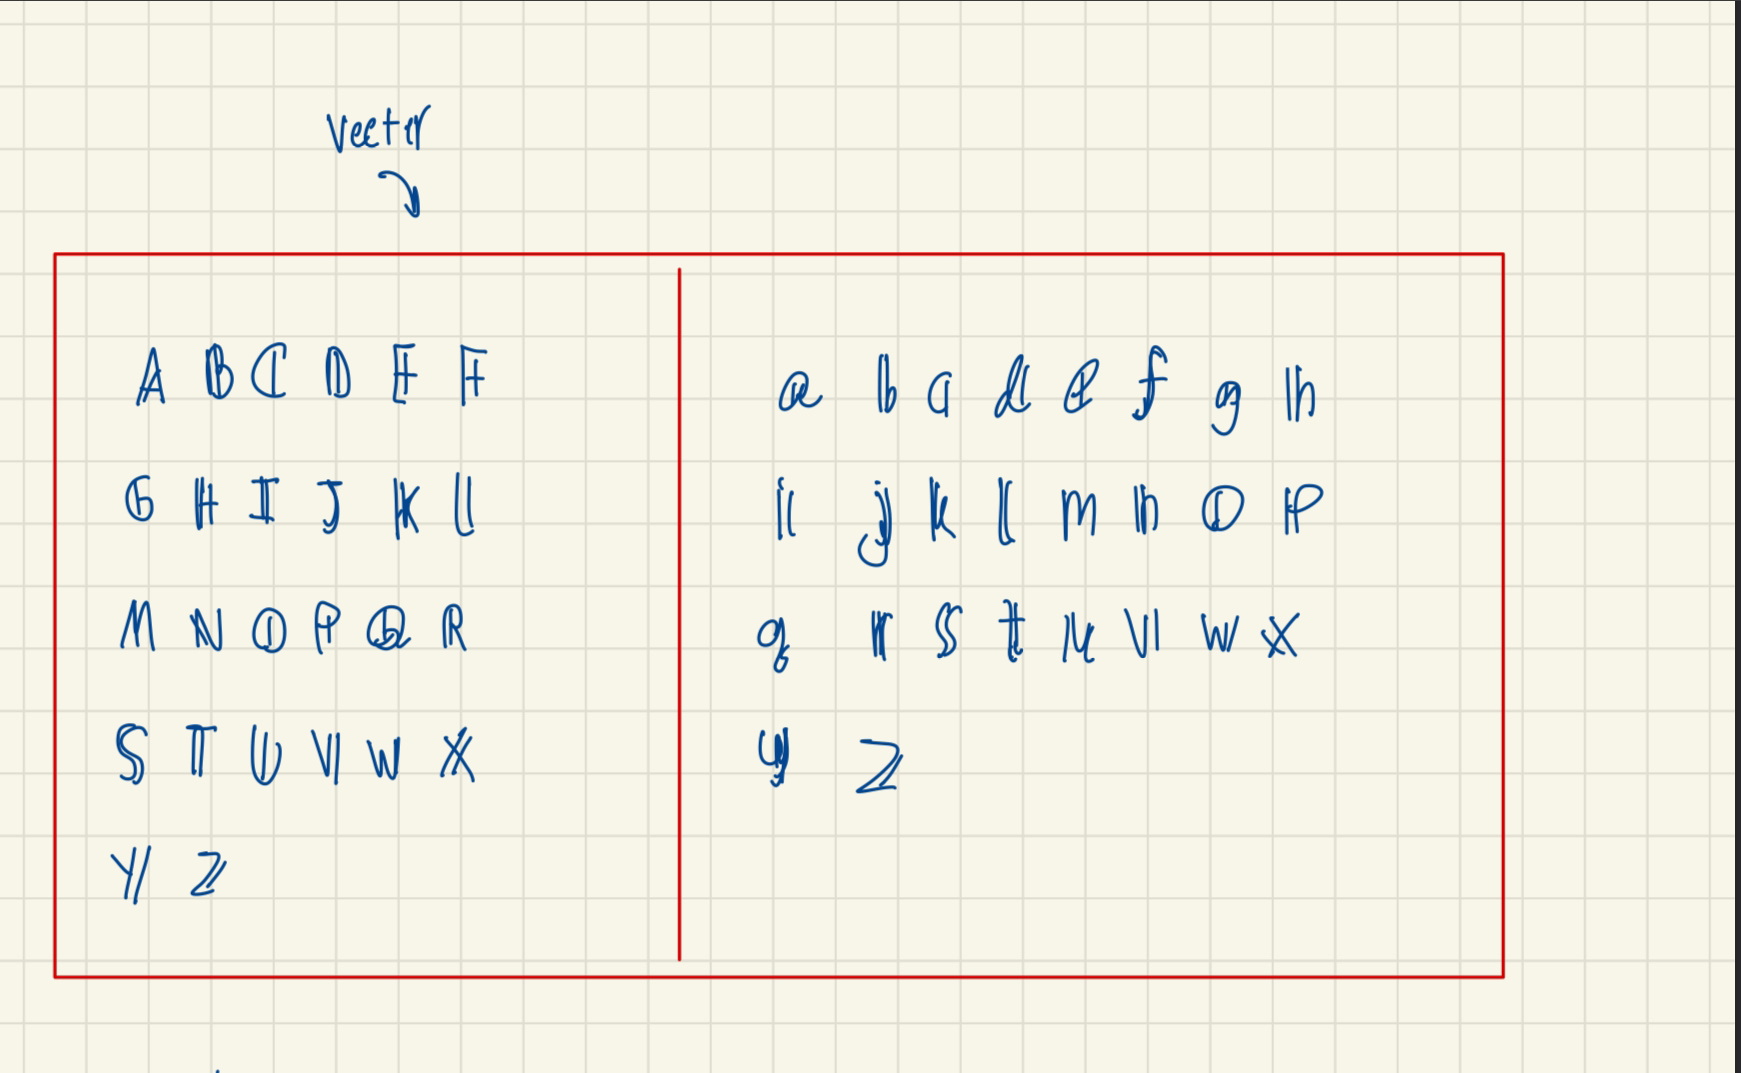 vector
A B C D E F
G H I J K L
M N O P Q R
S T U V W X
Y Z
a b c d e f g h
i j k l m n o p
q r s t u v w x
y z